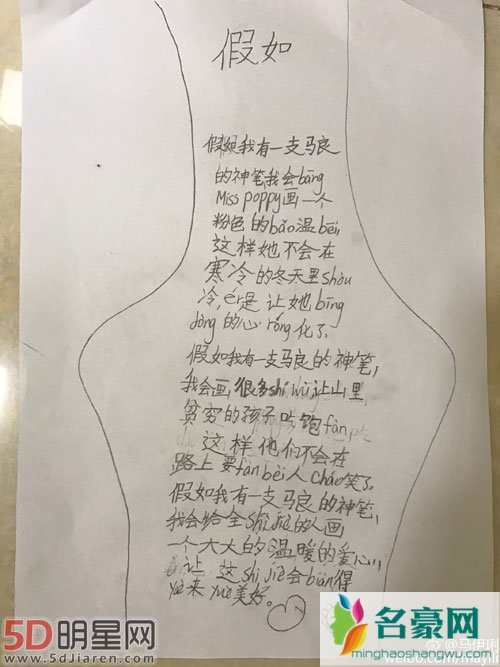 假如
假如我有一支马良
的神笔我会bāng
Miss poppy画一个
粉色的bǎo温bēi,
这样她不会在
寒冷的冬天里shòu
冷,ér是让她bīng
dòng的心róng化了
假如我有一支马良的神笔,
我会画很多shí wù让山里
贫穷的孩子吃饱fàn
这样他们不会在
路上要fàn bèi人cháo笑了
假如我有一支马良的神笔,
我会给全shì jiè的人画
一个大大的温暖的爱心,
让这shì jiè会biàn得
yuè来yuè美好。
5D明星网
www.5djiaren.com
名豪网
minghaoshangwu.com
@马伊琍